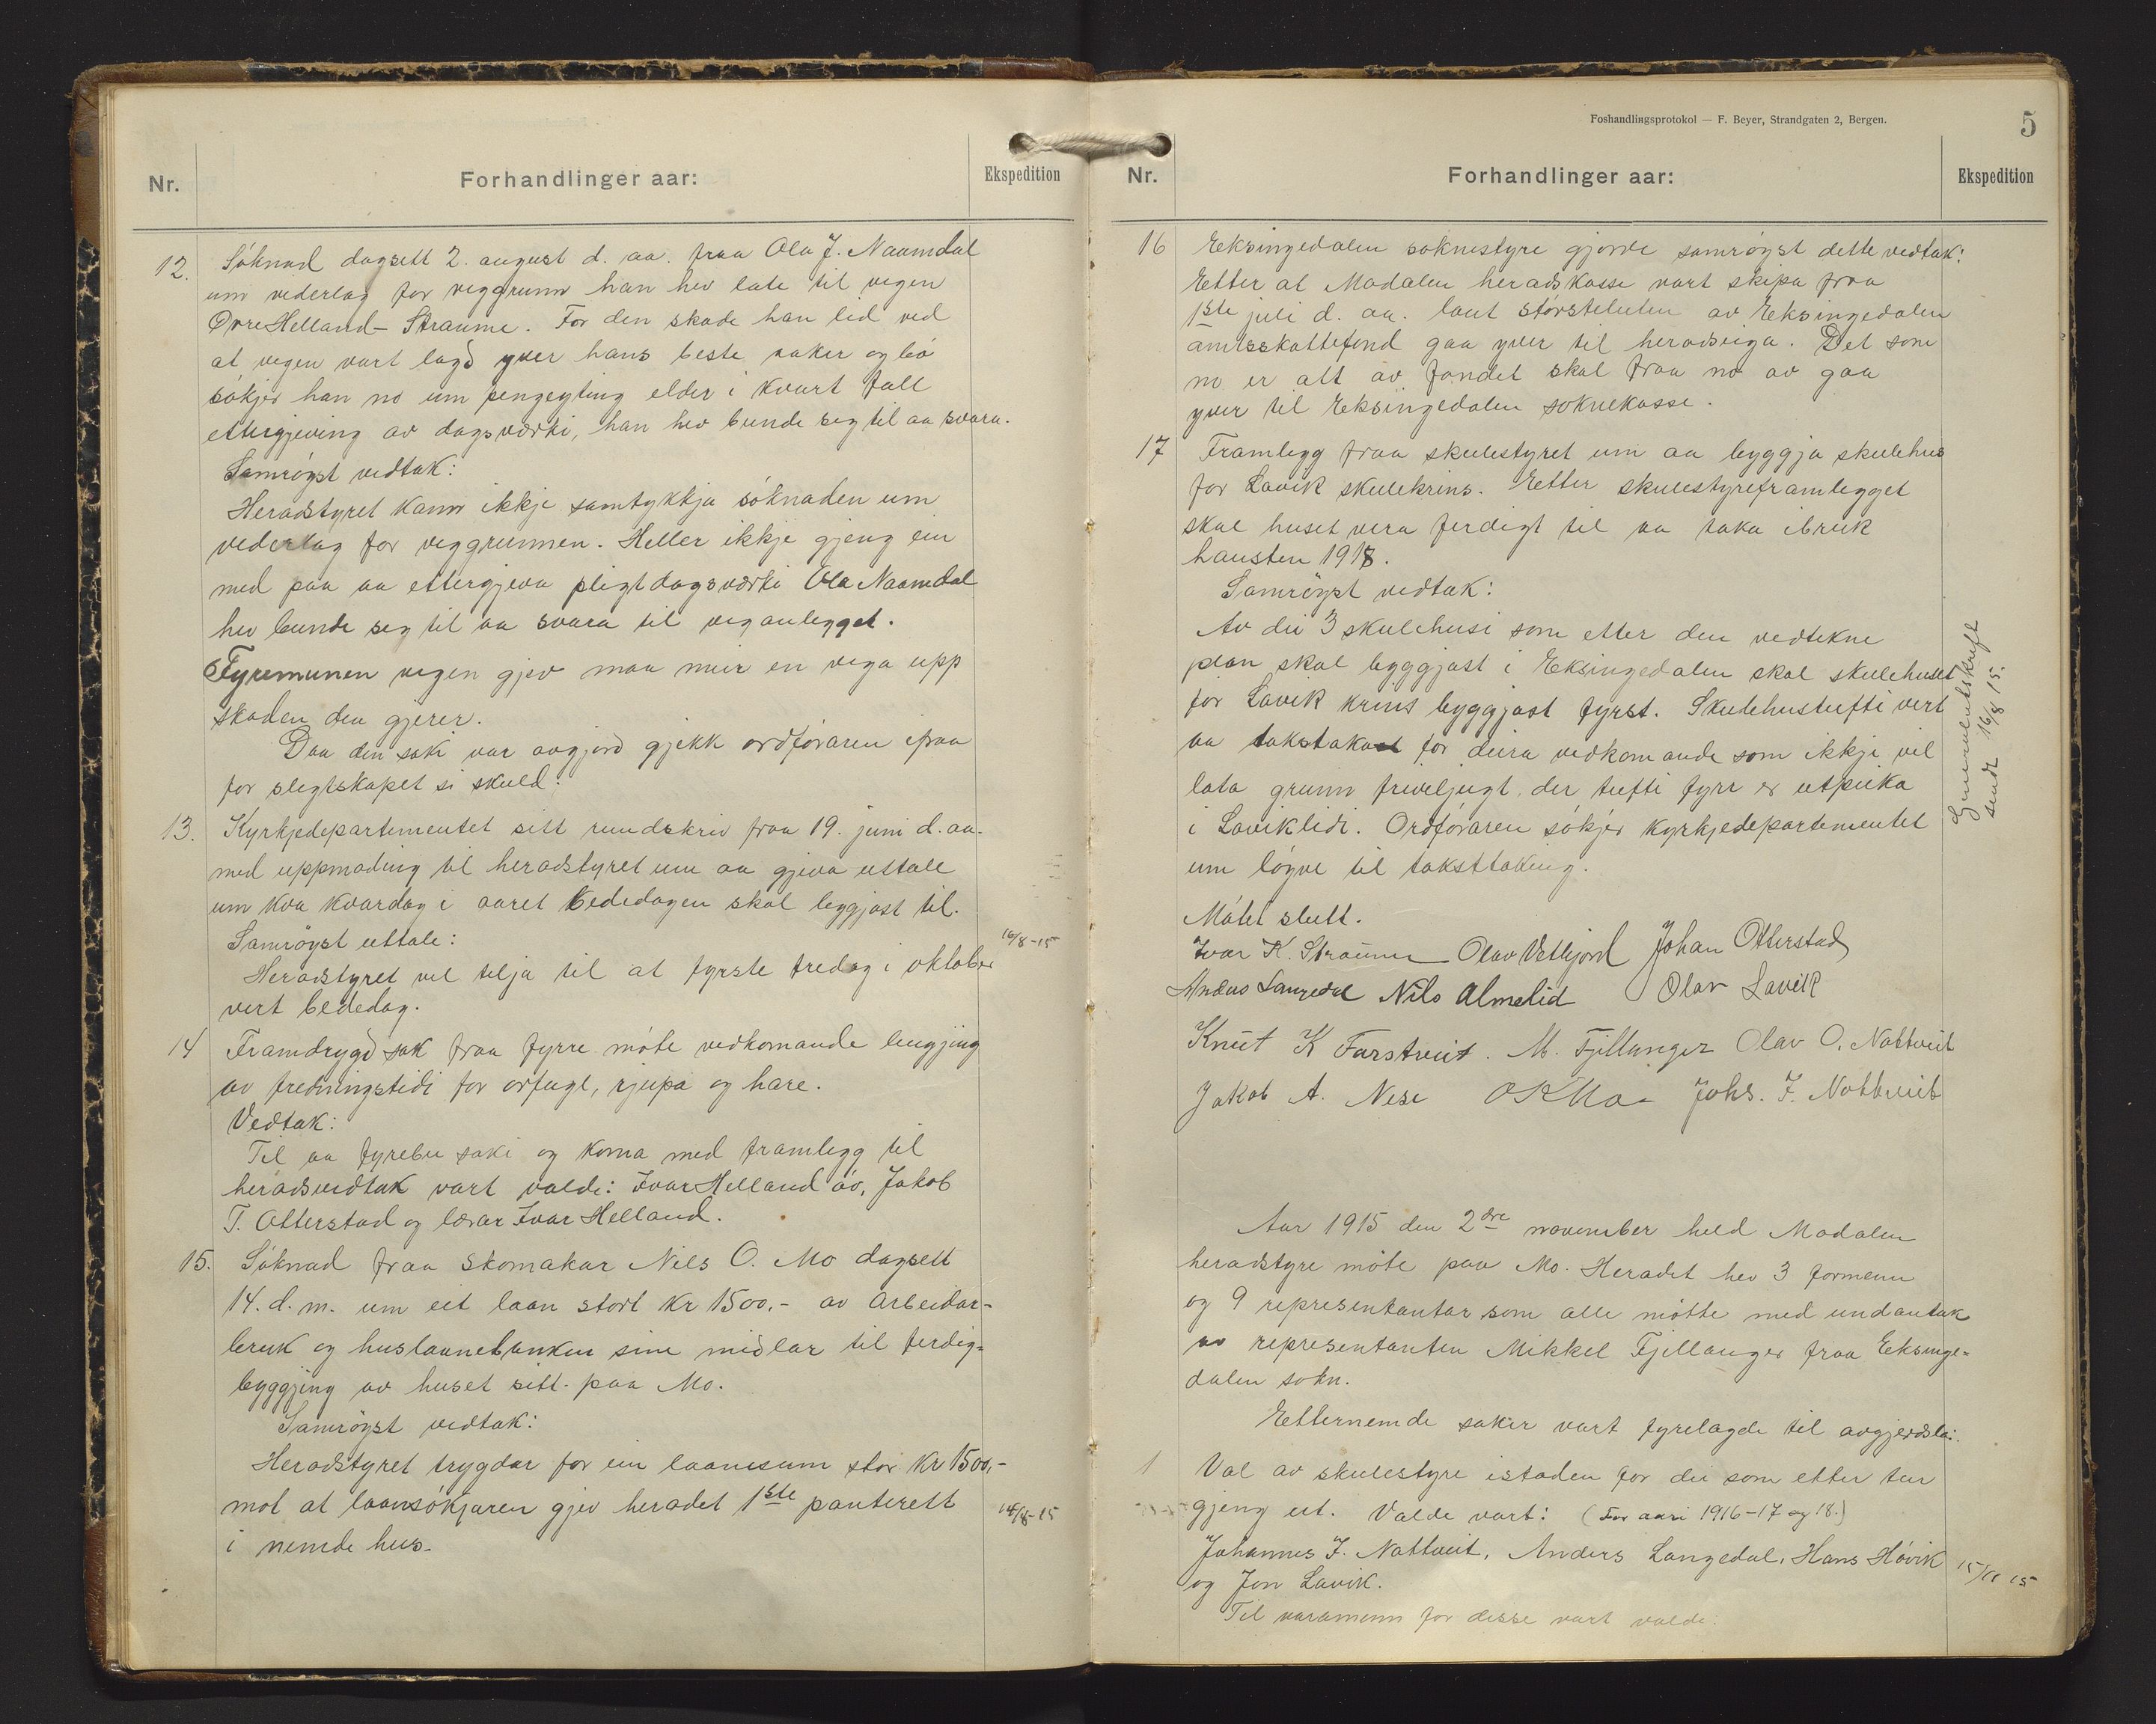 Nr.
Forhandlinger aar:
Ekspedition
12. Söknad dagsett 2. august d. aa. fraa Ola J. Naamdal
um vederlag for veggrunn han hev late til vegen
Øvre Helland - Straume. For den skade han lid ved
at vegen vart lagd yver hans beste aaker og bö
sökjer han no um pengeyting elder i kvart fall
ettergjeving av dagsværki, han hev bunde seg til aa svara.
Samröyst vedtak:
Heradstyret kann ikkje samtykkja söknaden um
vederlag for veggrunnen. Heller ikkje gjeng ein
med paa aa ettergjeva pligtdagsværki Ola Naamdal
hev bunde seg til aa svara til veganlegget.
Fyremunen vegen gjev maa meir en vega upp
skaden den gjerer.
Daa den saki var avgjord gjekk ordföraren ifraa
for slegtskapet si skuld.
13. Kyrkjedepartementet sitt rundskriv fraa 19. juni d. aa.
med uppmoding til heradstyret um aa gjeva uttale
um kva kvardag i aaret bededagen skal leggjast til.
Samröyst uttale:
16/8-15
Heradstyret vil telja til at fyrste fredag i oktober
vert bededag.
14 Framdrygd sak fraa fyrre möte vedkomande lengjing
av fredningstidi for orfugl, rjupa og hare.
Vedtak:
Til aa fyrebu saki og koma med framlegg til
heradsvedtak vart valde: Ivar Helland öv, Jakob
T. Otterstad og lærar Ivar Helland.
15. Söknad fraa skomakar Nils O. Mo dagsett
14. d. m. um eit laan stort kr 1500,- av Arbeidar-
bruk og huslaanebanken sine midlar til ferdig-
byggjing av huset sitt paa Mo.
Samröyst vedtak:
Heradstyret trygdar for ein laanesum stor kr 1500,-
mot at laansökjaren gjev heradet 1ste panterett
16/8-15
i nemde hus.
Foshandlingsprotokol — F. Beyer, Strandgaten 2, Bergen.
5
Nr.
Forhandlinger aar:
Ekspedition
16 Eksingedalen soknestyre gjorde samröyst dette vedtak:
Etter at Modalen heradskasse vart skipa fraa
1ste juli d. aa. laut störsteluten av Eksingedalen
amtsskattefond gaa yver til heradseiga. Det som
no er att av fondet skal fraa no av gaa
yver til Eksingedalen soknekasse.
17 Framlegg fraa skulestyret um aa byggja skulehus
for Lavik skulekrins. Etter skulestyreframlegget
skal huset vera ferdigt til aa taka ibruk
hausten 1918.
Samröyst vedtak:
Av dei 3 skulehusi som etter den vedtekne
plan skal byggjast i Eksingedalen skal skulehuset
for Lavik krins byggjast fyrst. Skulehustufti vert
aa takstaka for deira vedkomande som ikkje vil
lata grunn friviljugt der tufti fyrr er utpeika
i Laviklidi. Ordföraren sökjer kyrkjedepartementet
um löyve til taksttaking.
sendt 16/8 15.
Mötet slutt.
Ivar K. Straume Olav Vetlejord Johan Otterstad
Anders Langedal Nils Almelid Olav Lavik
Knut K Farstveit. M. Fjellanger Olav O. Nottveit
Jakob A. Nese O K Mo Johs. J. Nottveit
Aar 1915 den 2dre november held Modalen
heradstyre möte paa Mo. Heradet hev 3 formenn
og 9 representantar som alle mötte med undantak
av representanten Mikkel Fjellanger fraa Eksinge-
dalen sokn.
Etternemde saker vart fyrelagde til avgjerdsla:
1 Val av skulestyre istaden for dei som etter tur
gjeng ut. Valde vart: (For aari 1916-17 og 18.)
Johannes J. Nottveit, Anders Langedal, Hans Hövik
15/11 15
og Jon Lavik.
Til varamenn for desse vart valde: